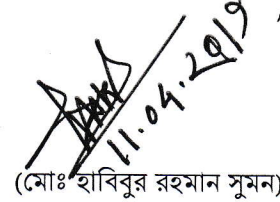 11.04.2019
(মোঃ হাবিবুর রহমান সুমন)